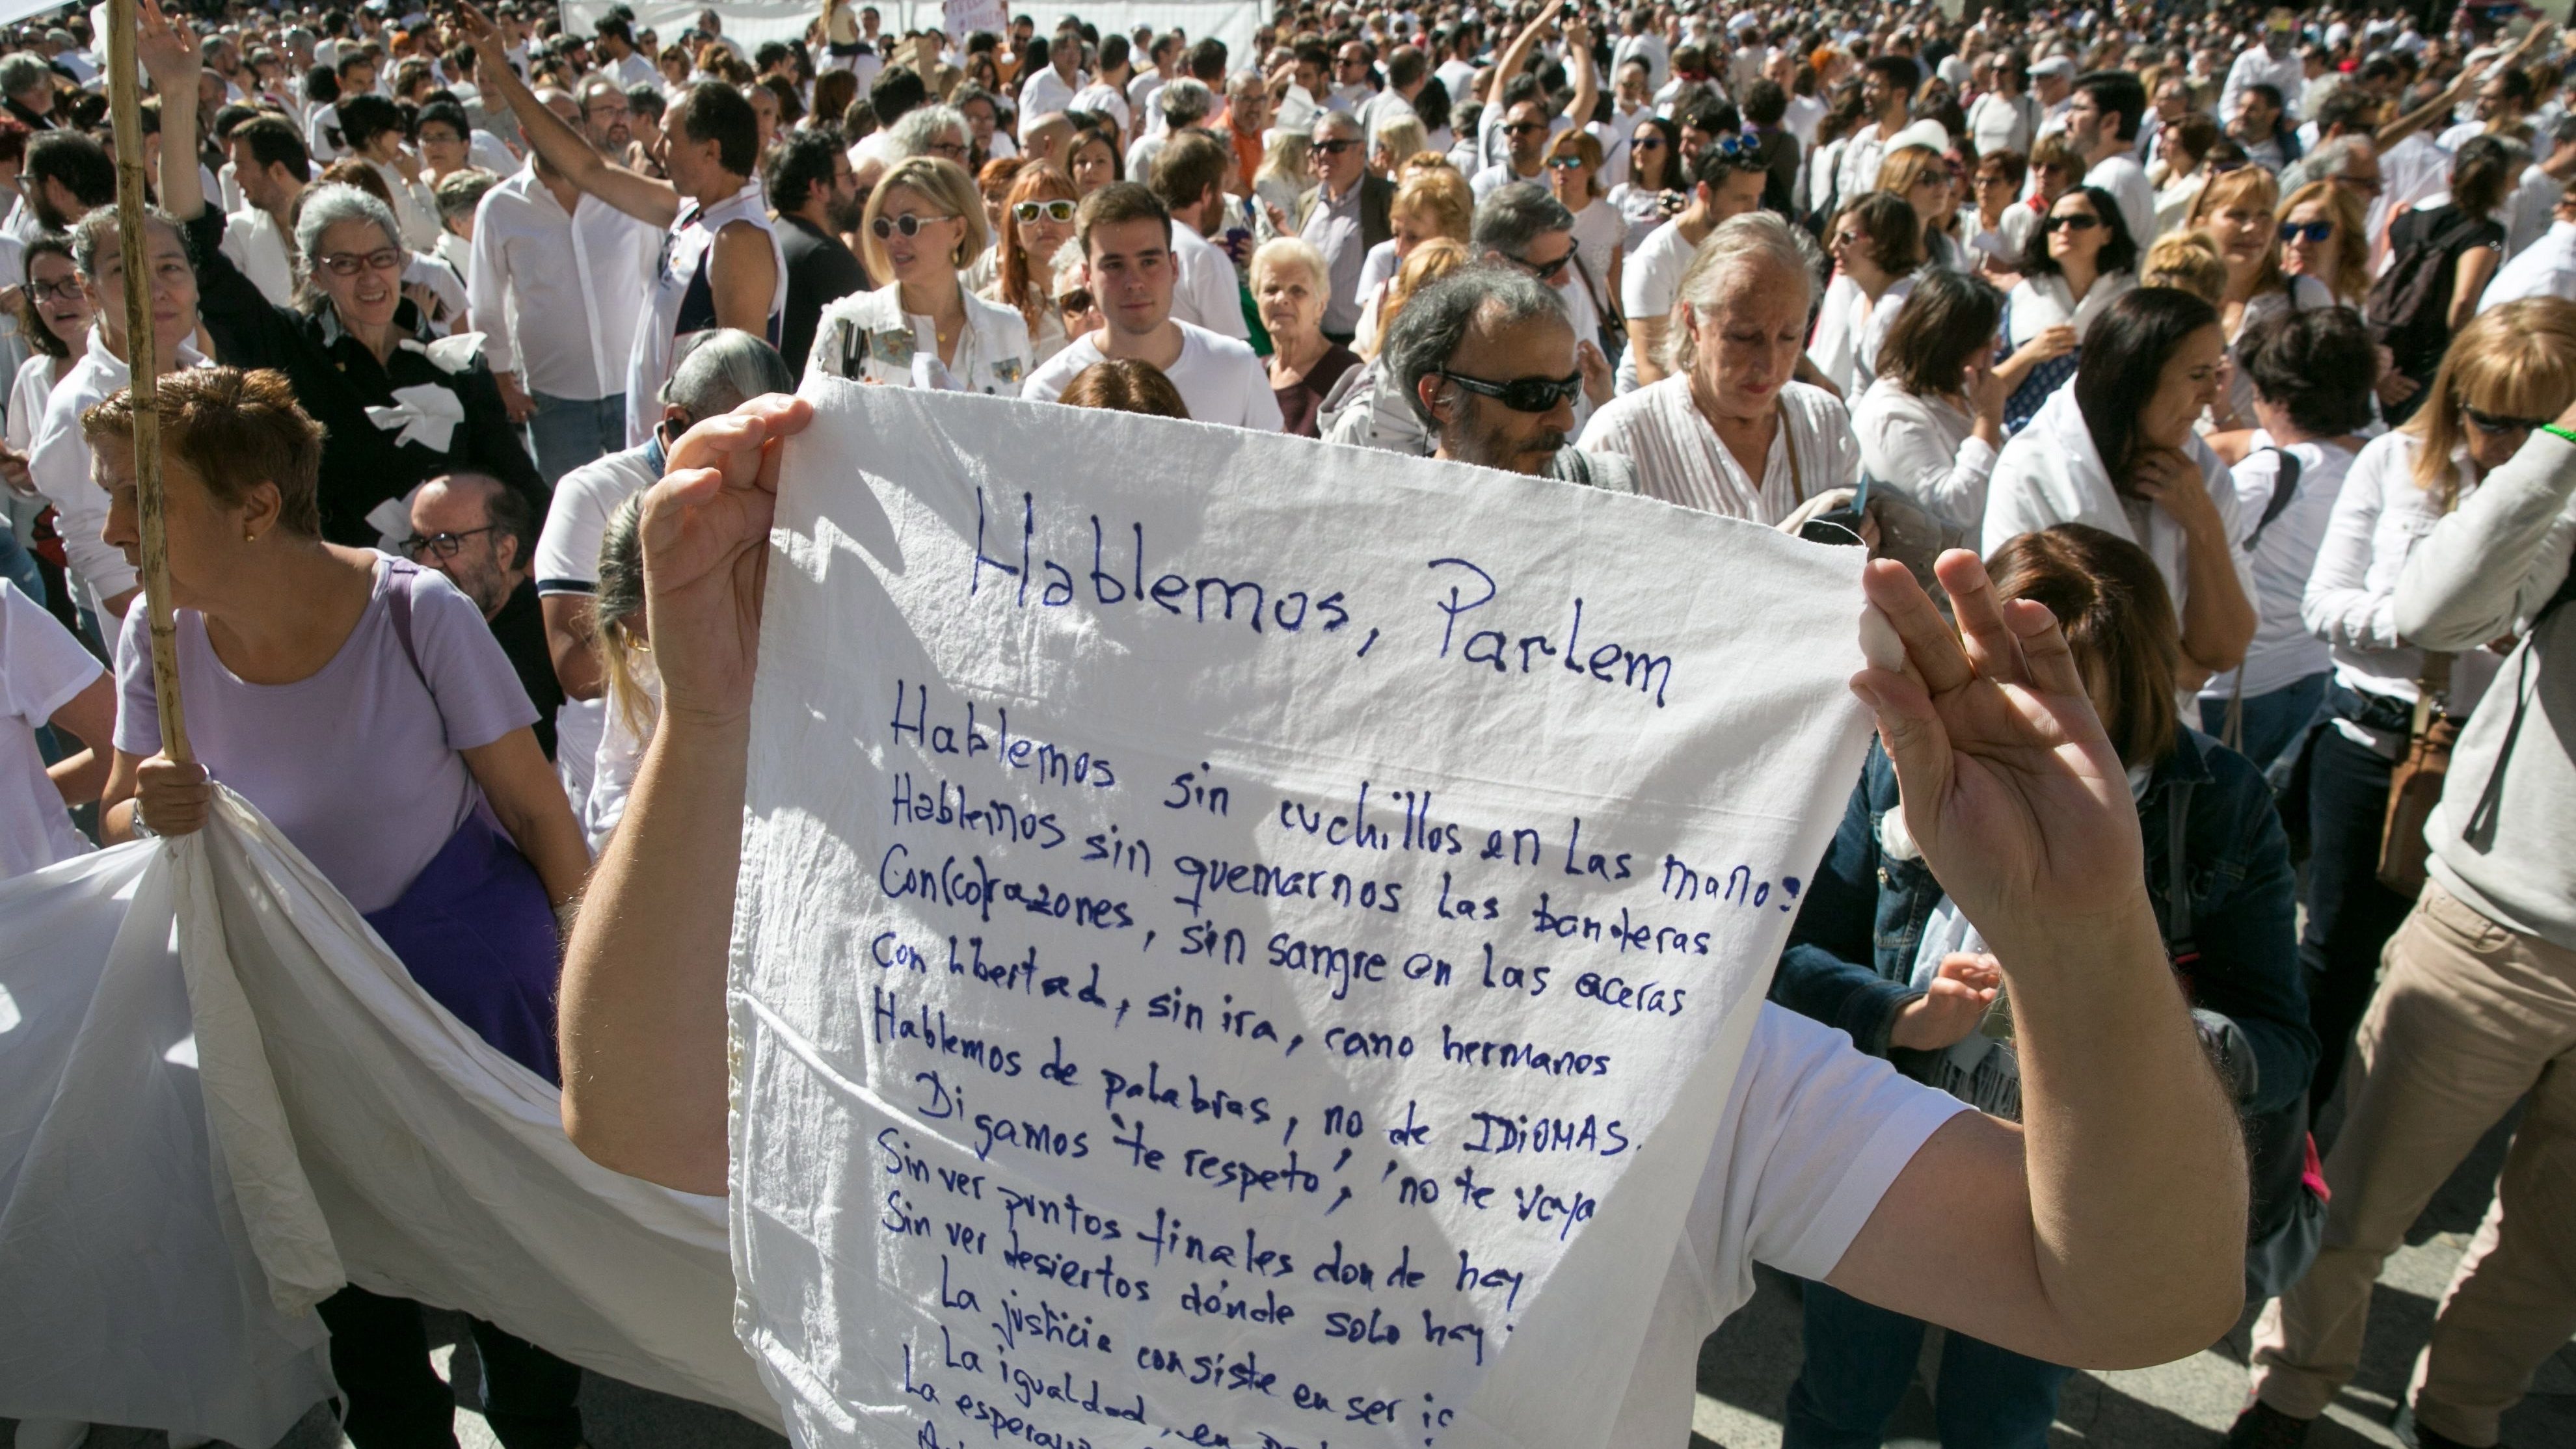 Hablemos, Parlem
Hablemos sin cuchillos en las manos
Hablemos sin quemarnos las banderas
Con(co)razones, sin sangre en las aceras
Con libertad, sin ira, cano hermanos
Hablemos de palabras, no de IDiOMAS.
Digamos 'te respeto', 'no te vaya
Sin ver puntos finales donde hay
Sin ver desiertos dónde solo hay
La justicia consiste en ser
La igualdad, en
La